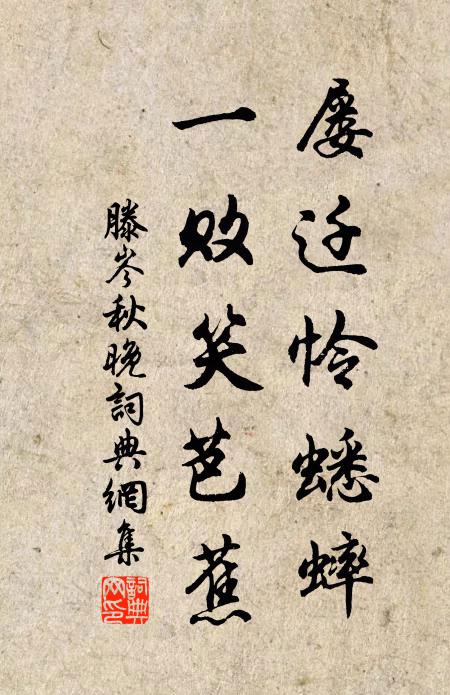 屡迁怜蟋蟀
一败笑芭蕉
滕岑秋晚詞典網集
詞典网印